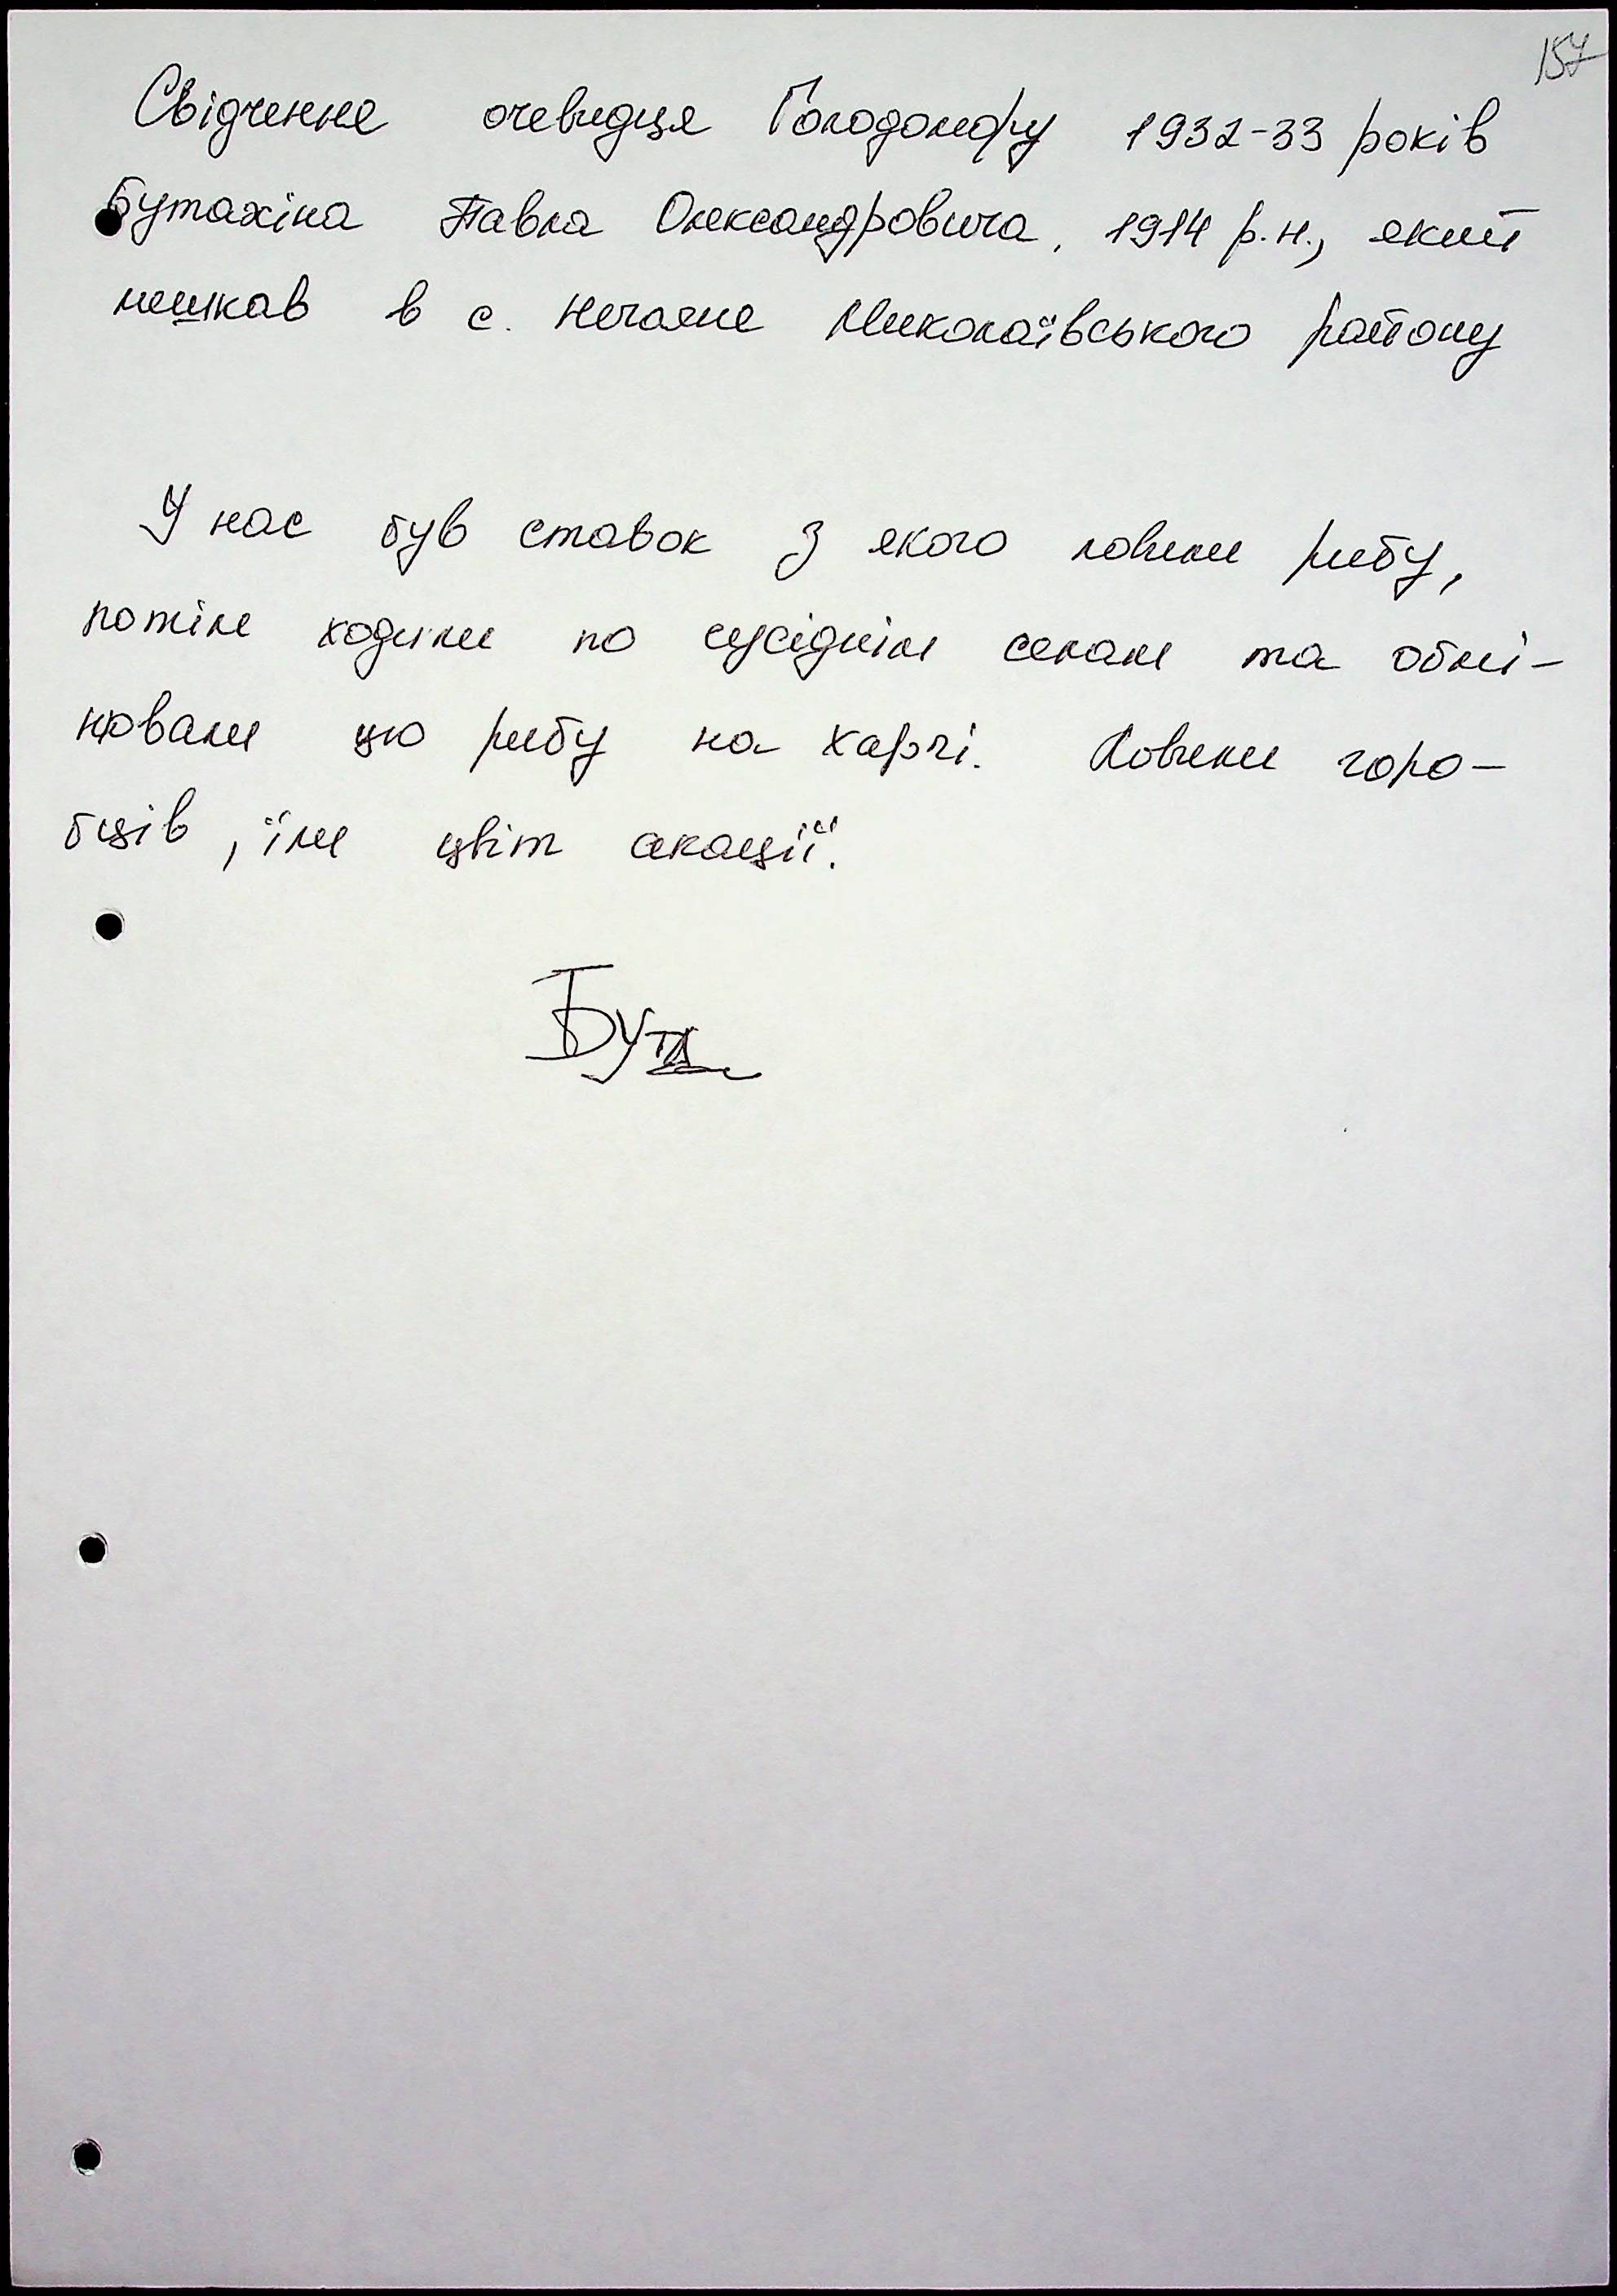 157
Свідчення очевидця Голодомору 1932-33 років
Бутахіна Павла Олександровича, 1914 р.н., який
мешкав в с. Нечаяне Миколаївського району
У нас був ставок з якого ловили рибу,
потім ходили по сусіднім селам та обмі-
нювали цю рибу на харчі. Ловили горо-
бців, їли цвіт акації.
Бута